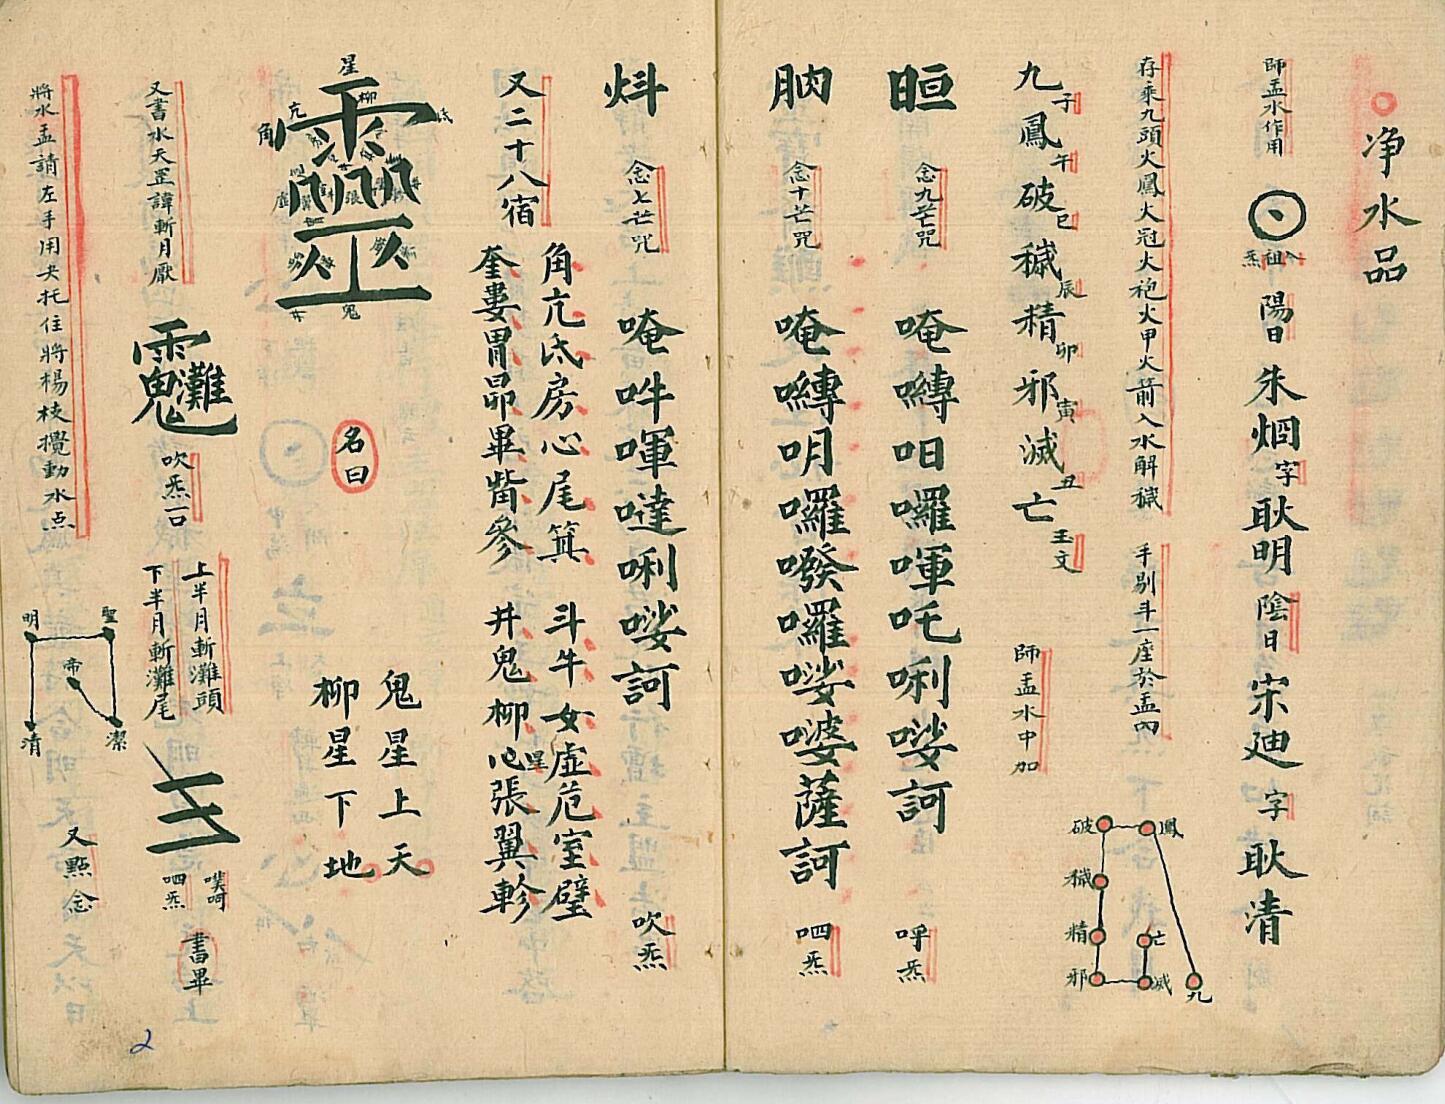 净水品
師盂水作用
炁祖入
陽日 朱烟字耿明 陰日宋迪字耿清
存乘九頭火鳳火冠火袍火甲火箭入水解穢 手剔斗一座於盂內
九鳳破穢精邪滅亡
子午巳辰卯寅丑
玉文
師盂水中加
破 鳳
穢
精 亡
邪 滅 九
晅 念九芒咒 唵囀呾囉㖇吒唎娑訶 呼炁
朒 念十芒咒 唵囀明囉囉娑婆薩訶 呬炁
念七芒咒 唵吽㖇噠唎娑訶 吹炁
又二十八宿
角亢氐房心尾箕 斗牛女虛危室壁
奎婁胃昴畢觜參 井鬼柳心星張翼軫
星
角 亢 柳 氐
井 鬼
名曰
鬼星上天
柳星下地
又書水天罡諱斬月厭
吹炁一口
上半月斬灘頭
下半月斬灘尾
噗呵
呬炁
書畢
將水盂請左手用夬托住將楊枝攪動水点
明 聖
帝
清 潔
又點念
2